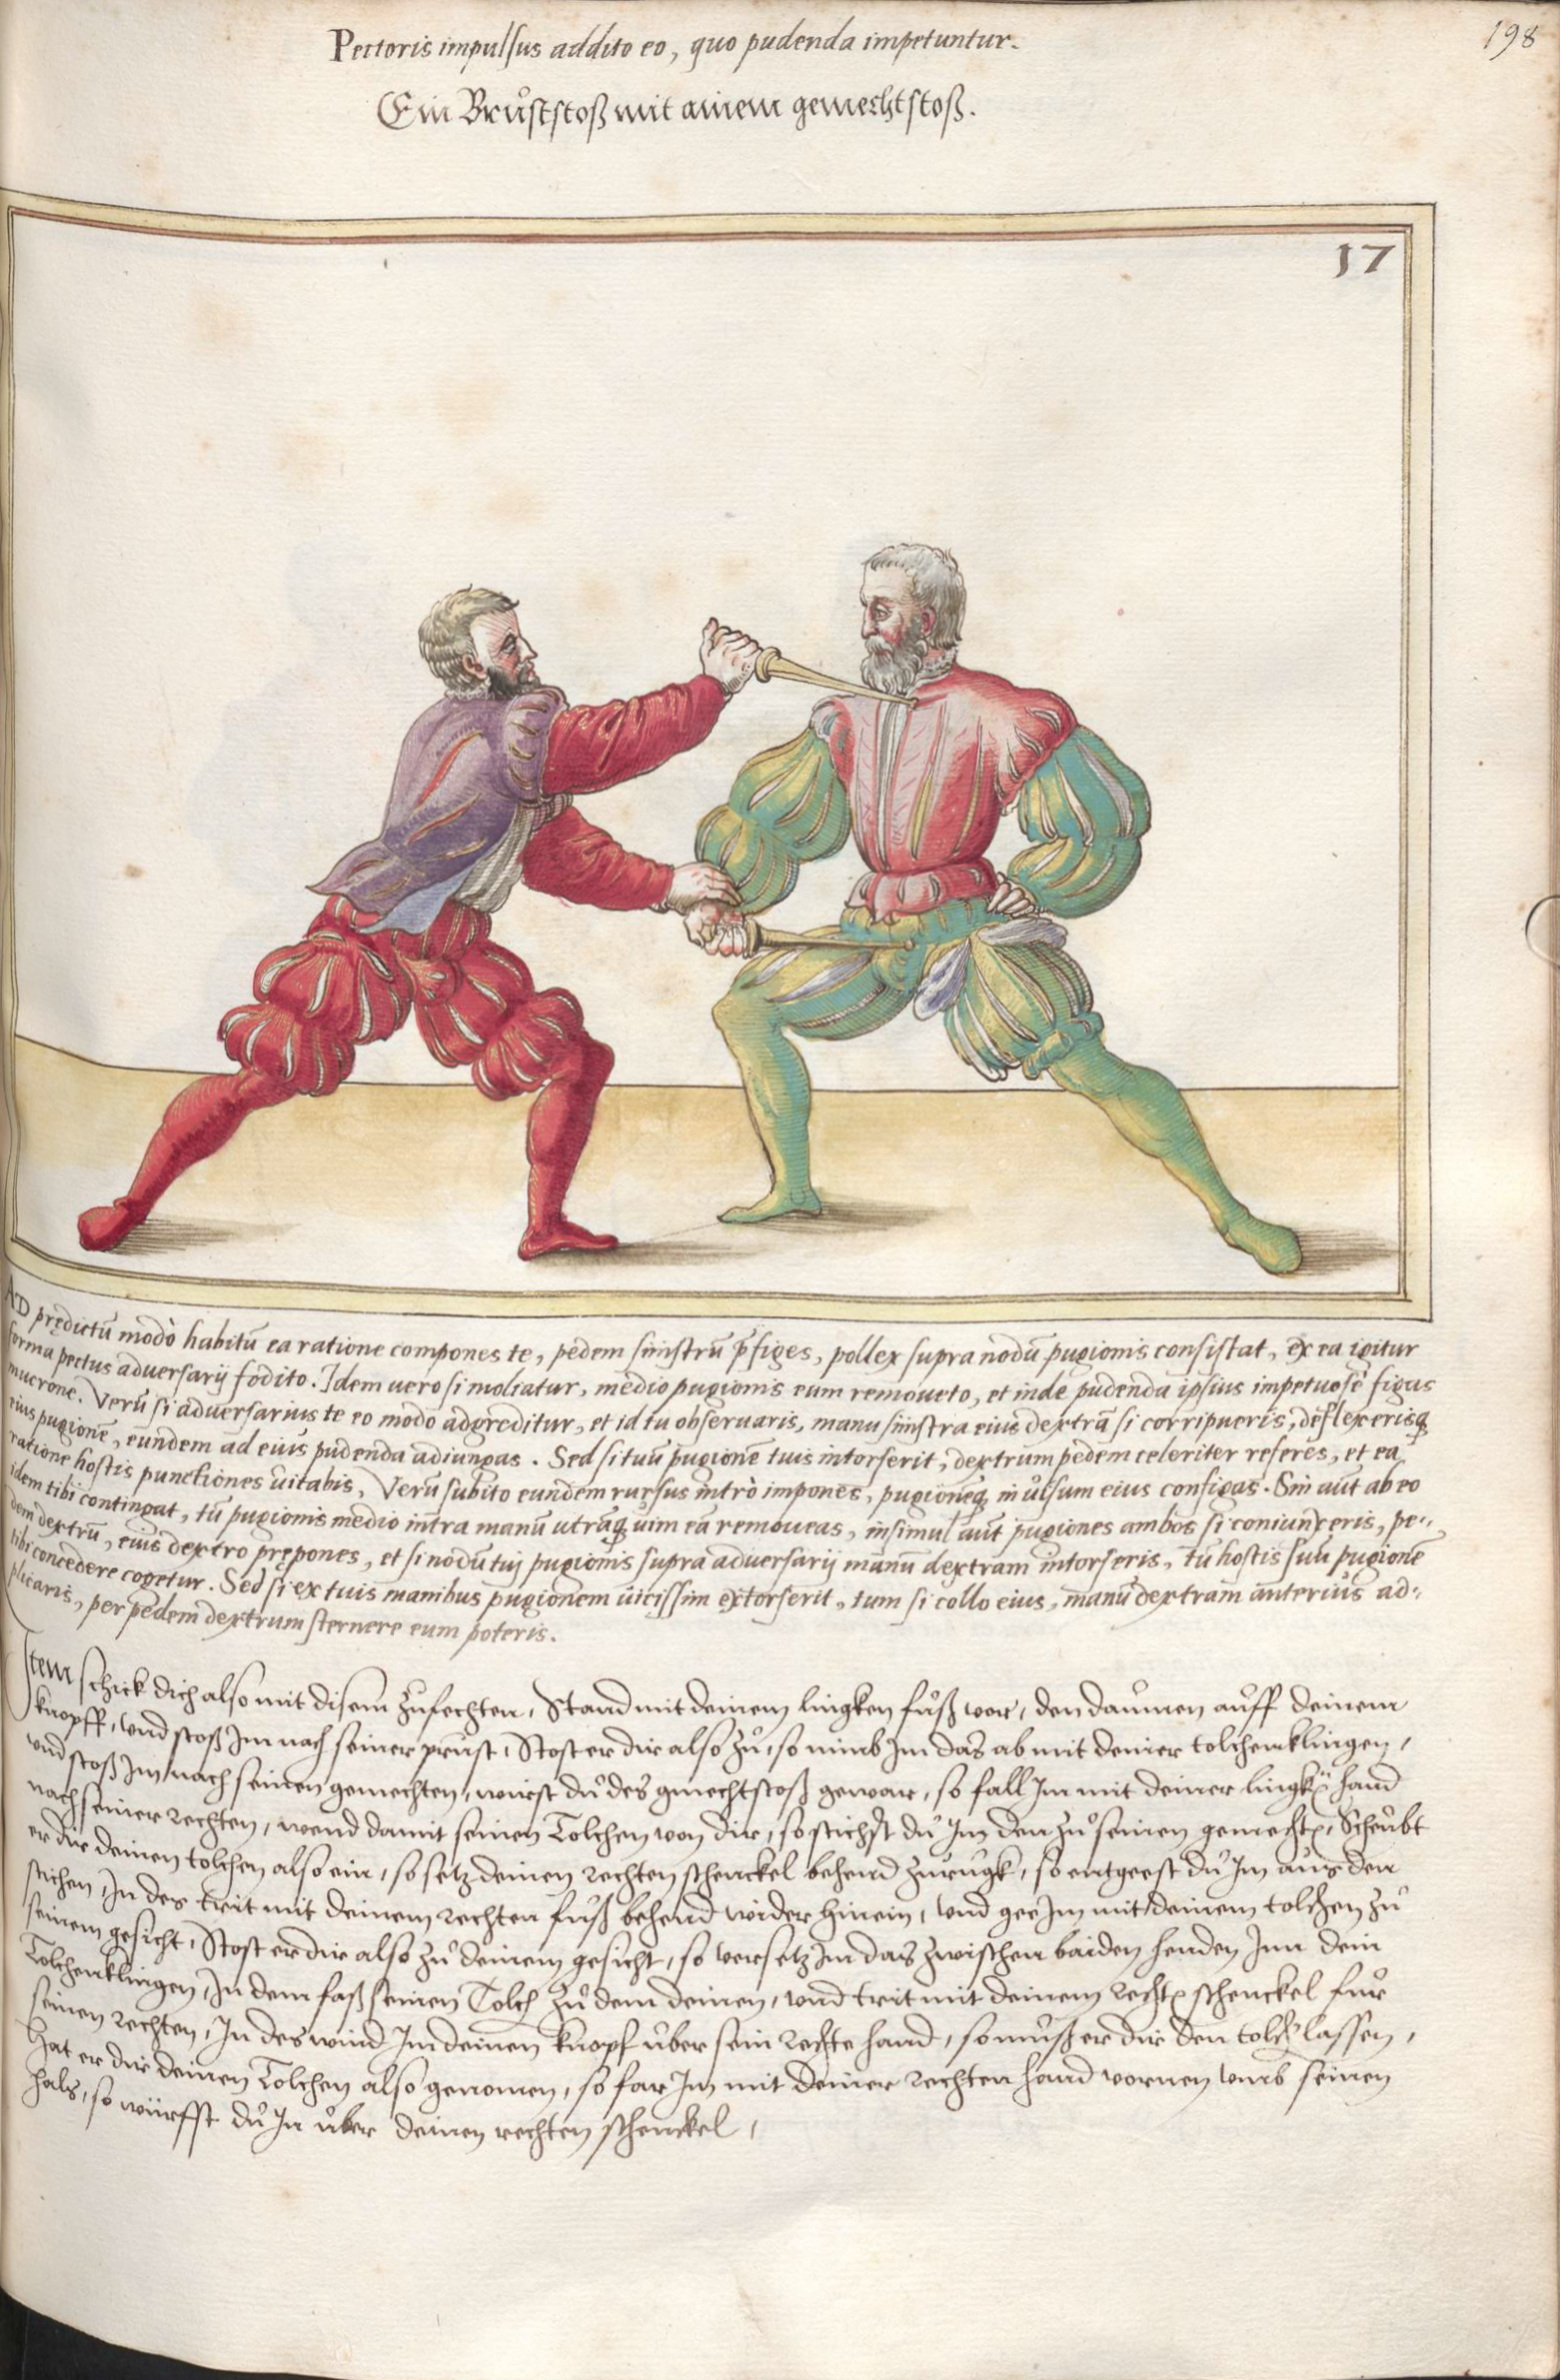 Pectoris impulsus addito eo, quo pudenda impetuntur.
198
Ein Brůststoß mit ainem gemechtstoß.
17
AD prędictū modò habitū ea ratione compones te, pedem sinistrū p̄figes, pollex supra nodū pugionis consistat, ex ea igitur
forma pectus aduersarij fodito. Idem uero si moliatur, medio pugionis eum remoueto, et inde pudenda ipsius impetuosè figas
mucrone. Verū si aduersarius te eo modo adgreditur, et id tu obseruaris, manu sinistra eius dextrā si corripueris, deflexerisq̨
eius pugionē, eundem ad eius pudenda adiungas. Sed si tuū pugionē tuis intorserit, dextrum pedem celeriter referes, et ea
ratione hostis punctiones uitabis, Verū subito eundem rursus intrò impones, pugionēq̨ in uulsum eius configas. Sin aūt ab eo
idem tibi contingat, tū pugionis medio intra manū utrāq̨ uim eā remoueas, insimul aūt pugiones ambos si coniunxeris, pe-
dem dextrū, eius dextro prępones, et si nodū tuj pugionis supra aduersarij manū dextram intorseris, tū hostis suū pugionē
tibi concedere cogetur. Sed si ex tuis manibus pugionem uicissim extorserit, tum si collo eius, manū dextram anterius ad-
plicaris, per pedem dextrum sternere eum poteris.
Item schick dich also mit disem zůfechten, Stand mit deinem lingken fůß vor, den daumen auff deinem
knopff, vnd stoß Im nach seiner prust, Stost er dir also zů, so nimb Im das ab mit deiner tolchenklingen,
vnd stoß Im nach seinen gemechten, wirst du des gmechtstoß gewar, so fall Im mit deiner lingkē hand
nach seiner rechten, wend damit seinen Tolchen von dir, so stichst du Im den zů seinen gemechtē, Scheubt
er dir deinen tolchen also ein, so setz deinen rechten schenckel behend zurugk, so entgeest du Im aus den
stichen, In des trit mit deinem rechten fůß behend wider hinein, vnd gee Im mit deinem tolchen zů
seinem gesicht, Stost er dir also zů deinem gesicht, so versetz Im das zwischen baiden henden Inn dein
Tolchenklingen, In dem faß seinen Tolch zů dem deinen, vnd trit mit deinem rechtē schenckel für
seinen rechten, In des wind Im deinen knopf uber sein rechte hand, so můß er dir den tolch lassen,
Hat er dir deinen Tolchen also genomen, so far Im mit deiner rechten hand vornen umb seinen
hals, so würffst du In uber deinen rechten schenckel,